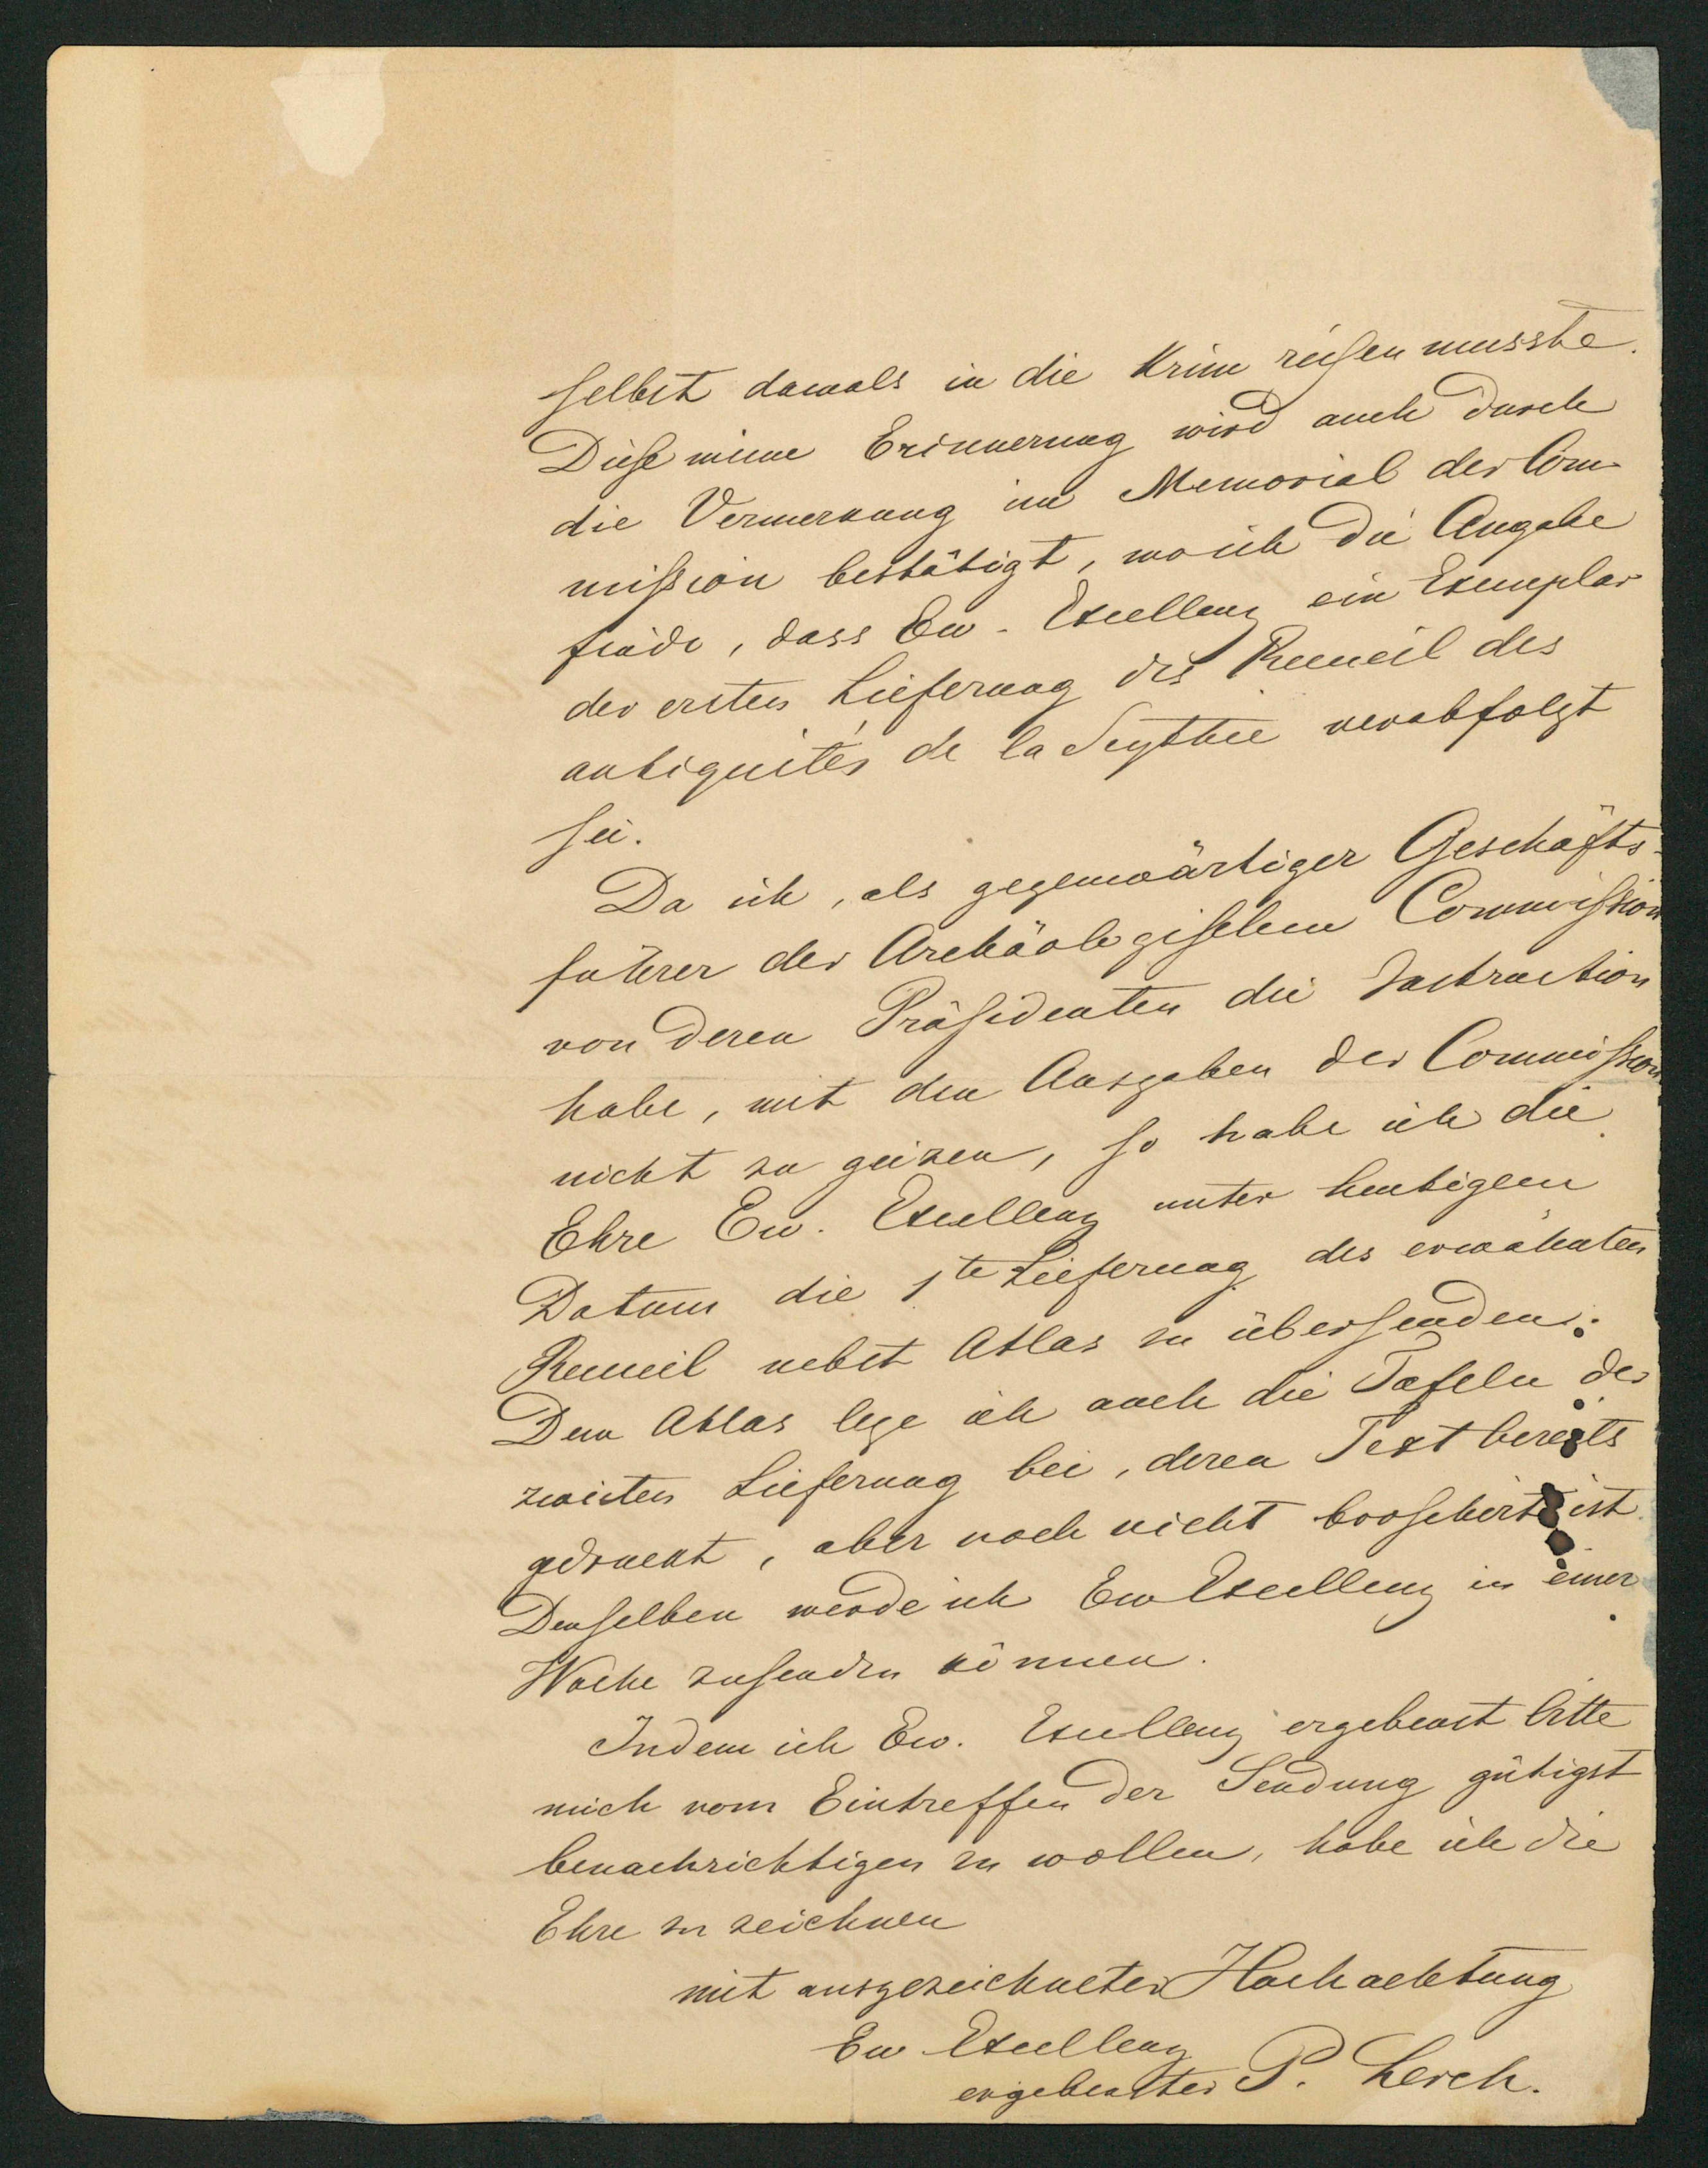 selbst damals in die Krim reisen musste.
Diese meine Erinnerung wird auch durch
die Vermerkung im Memorial der Com-
mission bestätigt, wo ich die Angabe
finde, dass Ew. Excellenz ein Exemplar
der ersten Lieferung des Recueil des
antiquités de la Scythie verabfolgt
sei.
Da ich, als gegenwärtiger Geschäfts-
führer der Archäologischen Commission
von deren Präsidenten die Instruction
habe, mit den Ausgaben der Commission
nicht zu geizen, so habe ich die
Ehre Ew. Excellenz unter heutigem
Datum die 1te Lieferung des erwähnten
Recueil nebst Atlas zu übersenden.
Dem Atlas lege ich auch die Tafeln der
zweiten Lieferung bei, deren Text bereits
gedruckt, aber noch nicht broschirt ist.
Denselben werde ich Ew Excellenz in einer
Woche zusenden können.
Indem ich Ew. Excellenz ergebenst bitte
mich vom Eintreffen der Sendung gütigst
benachrichtigen zu wollen, habe ich die
Ehre zu zeichnen
mit ausgezeichneter Hochachtung
Ew Excellenz
ergebenster P. Lerch.